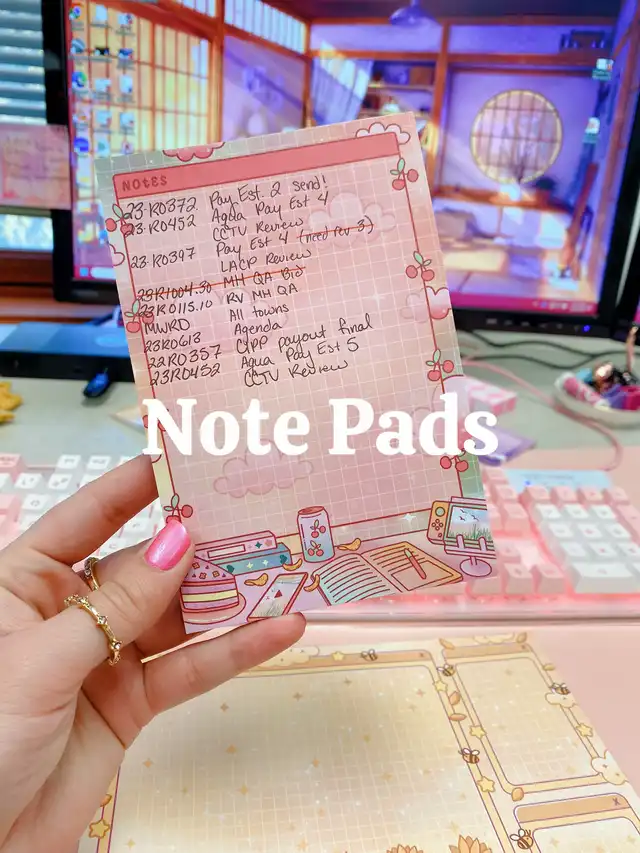 Notes
23-R0372 Pay Est. 2 Send!
23-R0452 Aqua Pay Est 4
CCTV Review
23-R0397 Pay Est 4 (need rev 3)
LACP Review
23R1004.30 MH QA Bid
23R0115.10 RV MH QA
MWRD All towns
23R0613 Agenda
22R0357 CIPP payout final
23R0452 Aqua Pay Est 5
CCTV Review
Note Pads